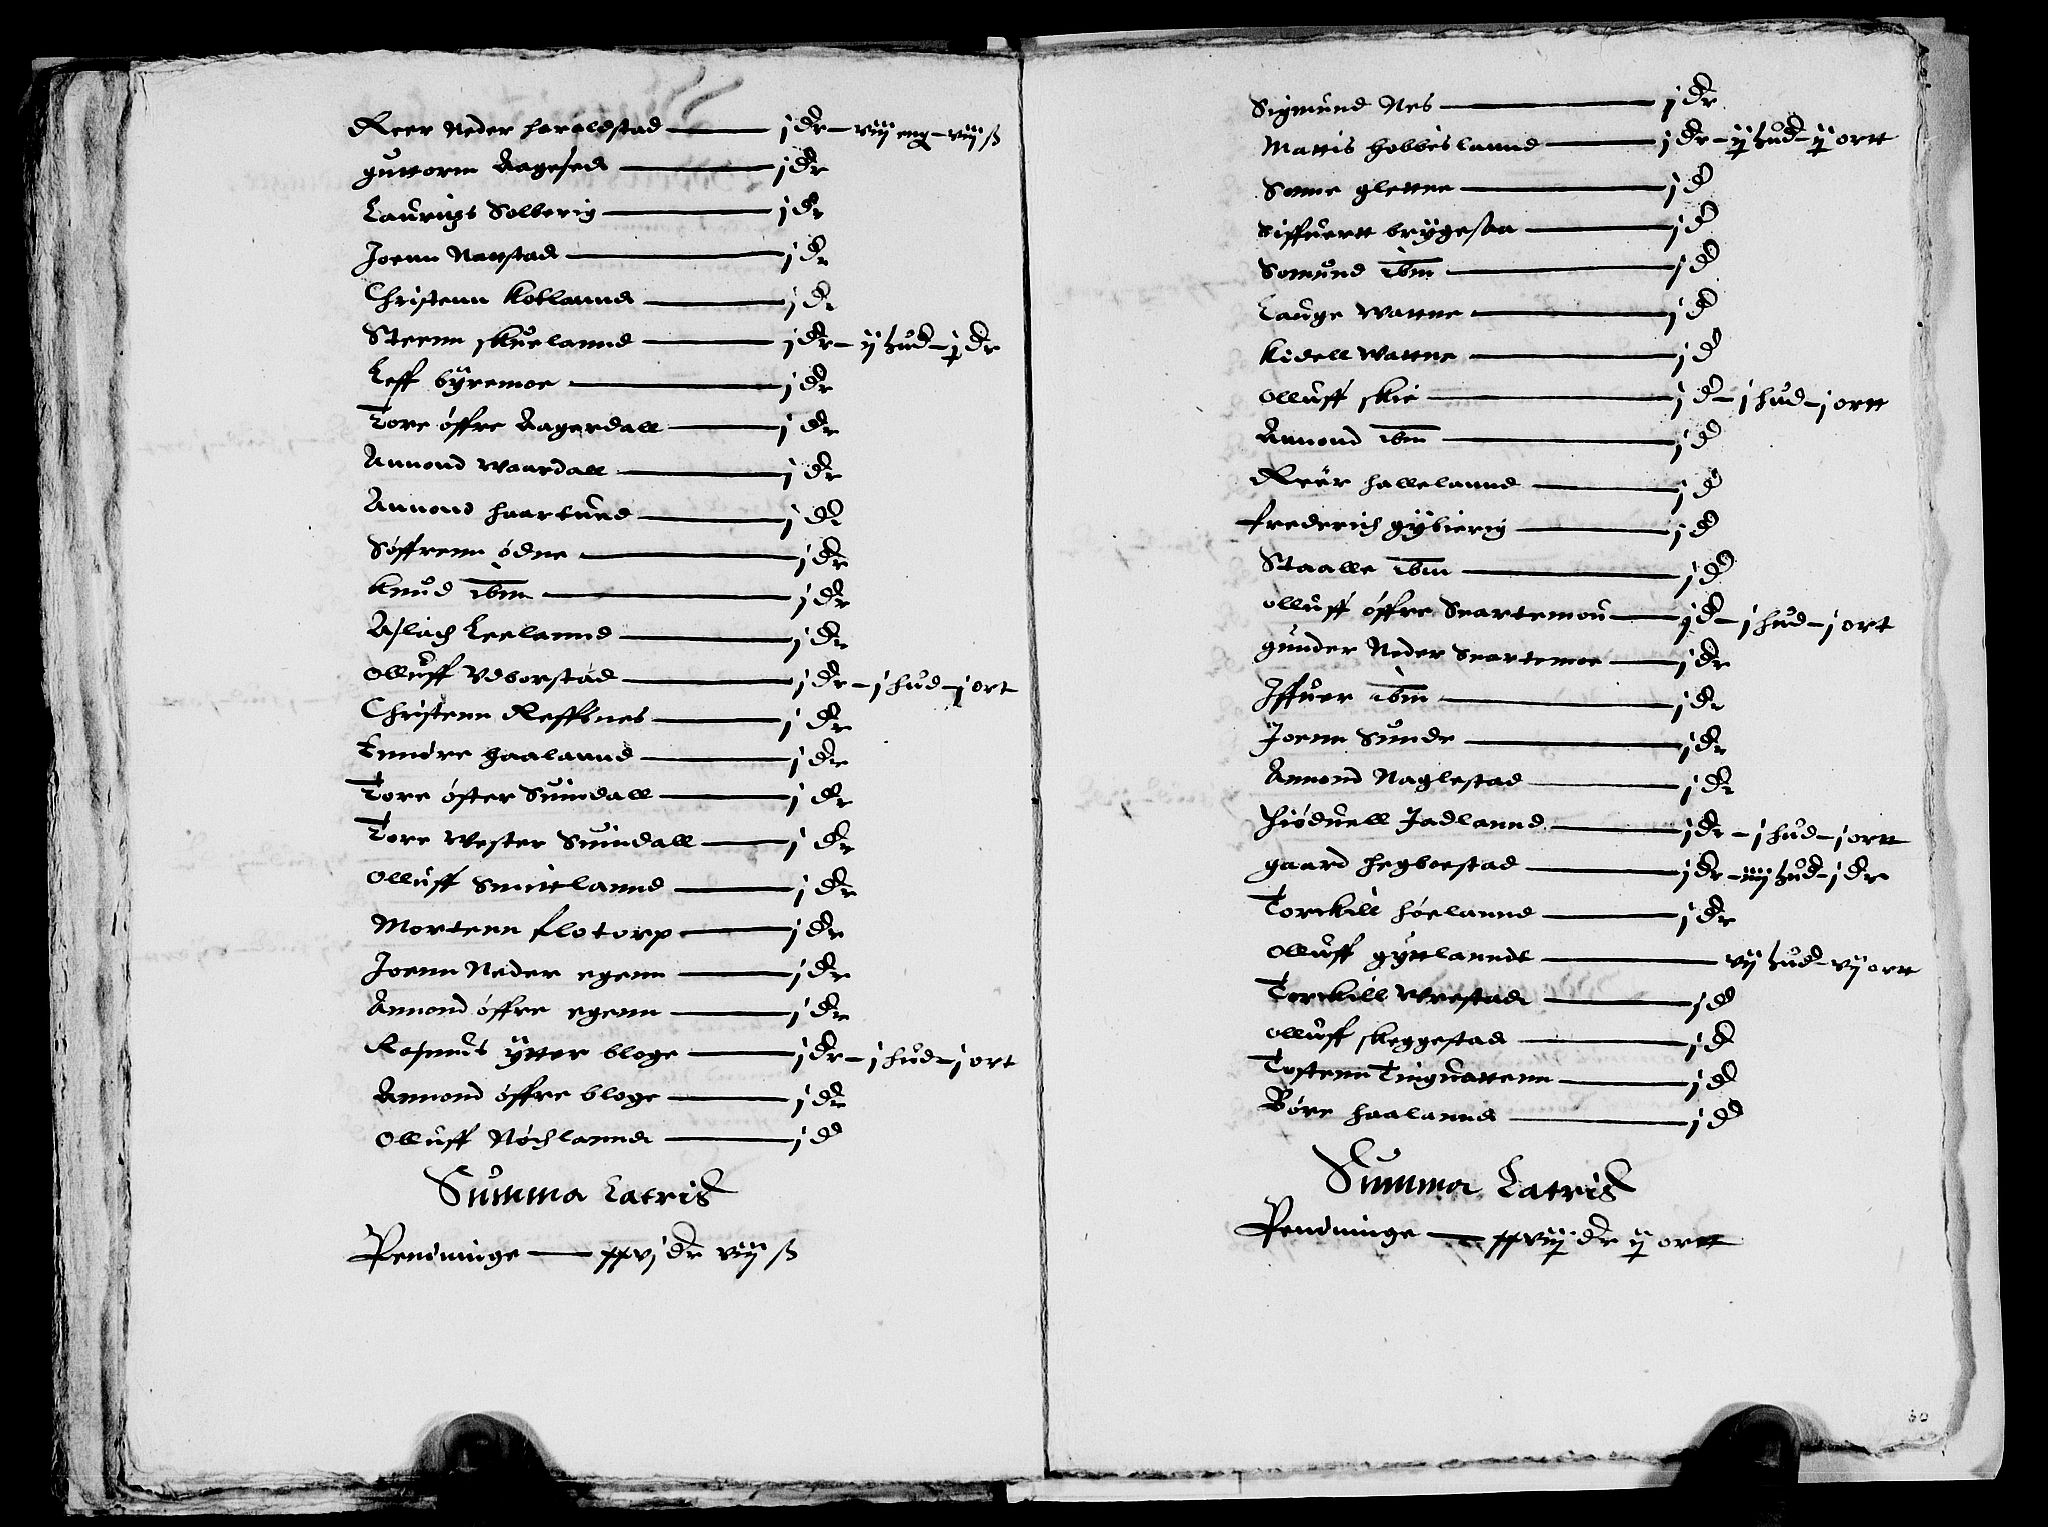 Reer Neder haraldstad — j dr — viij eng — viij ß
guttorm Aagesed — j dr
Lauritzs Solberig — j dr
Joenn Nattstad — j dr
Christenn Kollannd — j dr
Steenn skuelannd — j dr — ij hud — j dr
Leff byremoe — j dr
Tore øffre Aagerdall — j dr
Annond waardall — j dr
Annond haartued — j dr
Søffrenn ødne — j dr
Knud ibm — j dr
Aslach Leelannd — j dr
Olluff Vdborstad — j dr — j hud — j ort
Christenn Reffsnes — j dr
Enndre haalannd — j dr
Tore øster Suindall — j dr
Tore Wester Suindall — j dr
Olluff Smittlannd — j dr
Mortenn flotorp — j dr
Joenn Neder egenn — j dr
Annond øffre egenn — j dr
Rasmus ytter bloge — j dr — j hud — j ort
Annond øffre bloge — j dr
Olluff Nøchlannd — j d
Summa Latris
Penninge — xxvj dr viij ß
Sigmund Nes — j dr
Mattis hobbeslannd — j dr — ij hud — ij ortt
Sonne glettne — j d
Siffuertt brygesaa — j d
Somund ibm — j d
Lauge Wattne — j d
Kidell Wattne — j d
Olluff skie — j d — j hud — j ortt
Annond ibm — j d
Reër hallelannd — j d
frederich gybierig — j d
Staalle ibm — j d
Olluff øffre Snartemou — j d — j hud — j ort
gunder Neder Snartemoe — j dr
Iffuer ibm — j dr
Joenn Sunde — j dr
Annond Naglestad — j dr
hiøduell Jadlannd — j dr — j hud — j ortt
gaard hegboestad — j dr — iiij hud — j dr
Torckill høelannd — j dr
Olluff gyttlanndt — vij hud — vij ortt
Torckill Vrestad — j d
Olluff skeggestad — j d
Tostenn Tinguattenn — j d
Børe haalannd — j d
Summa Latris
Penninge — xxviij dr ij ortt
60